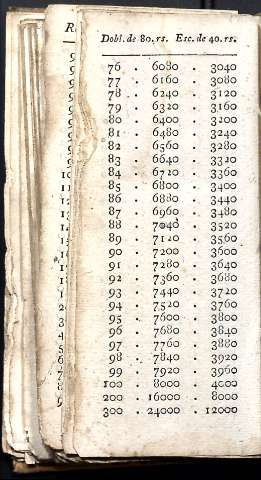 Dobl. de 80.rs. Esc. de 40.rs.
76 . 6080 . 3040
77 . 6160 . 3080
78 . 6240 . 3120
79 . 6320 . 3160
80 . 6400 . 3200
81 . 6480 . 3240
82 . 6560 . 3280
83 . 6640 . 3320
84 . 6720 . 3360
85 . 6800 . 3400
86 . 6880 . 3440
87 . 6960 . 3480
88 . 7040 . 3520
89 . 7120 . 3560
90 . 7200 . 3600
91 . 7280 . 3640
92 . 7360 . 3680
93 . 7440 . 3720
94 . 7520 . 3760
95 . 7600 . 3800
96 . 7680 . 3840
97 . 7760 . 3880
98 . 7840 . 3920
99 . 7920 . 3960
100 . 8000 . 4000
200 . 16000 . 8000
300 . 24000 . 12000